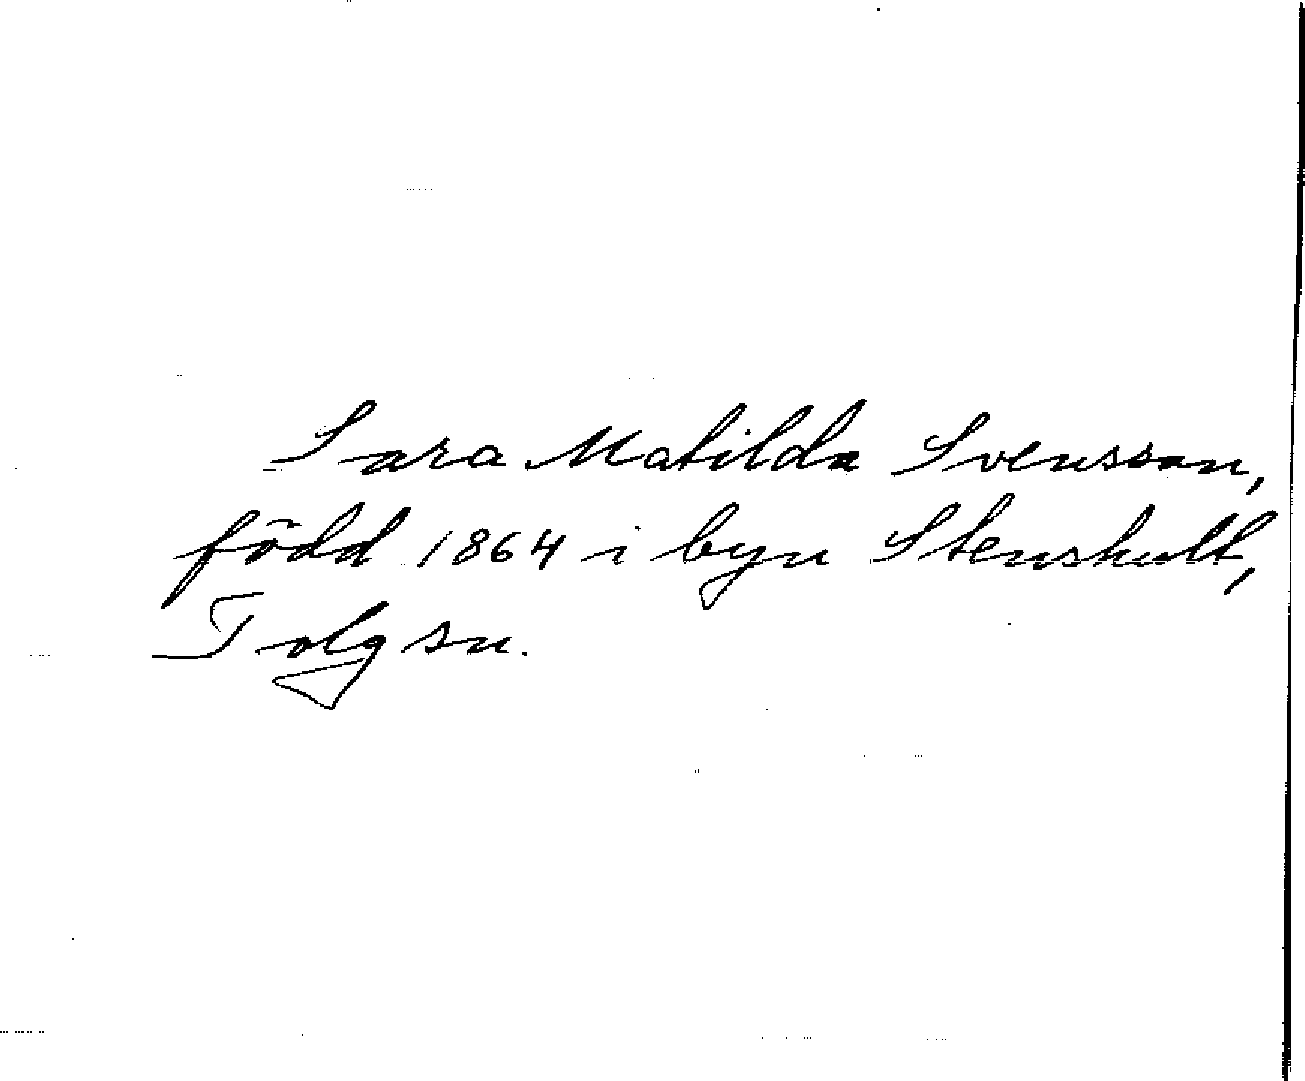 Sara Matilda Svensson,
född 1864 i byn Stenshult,
Tolg sn.